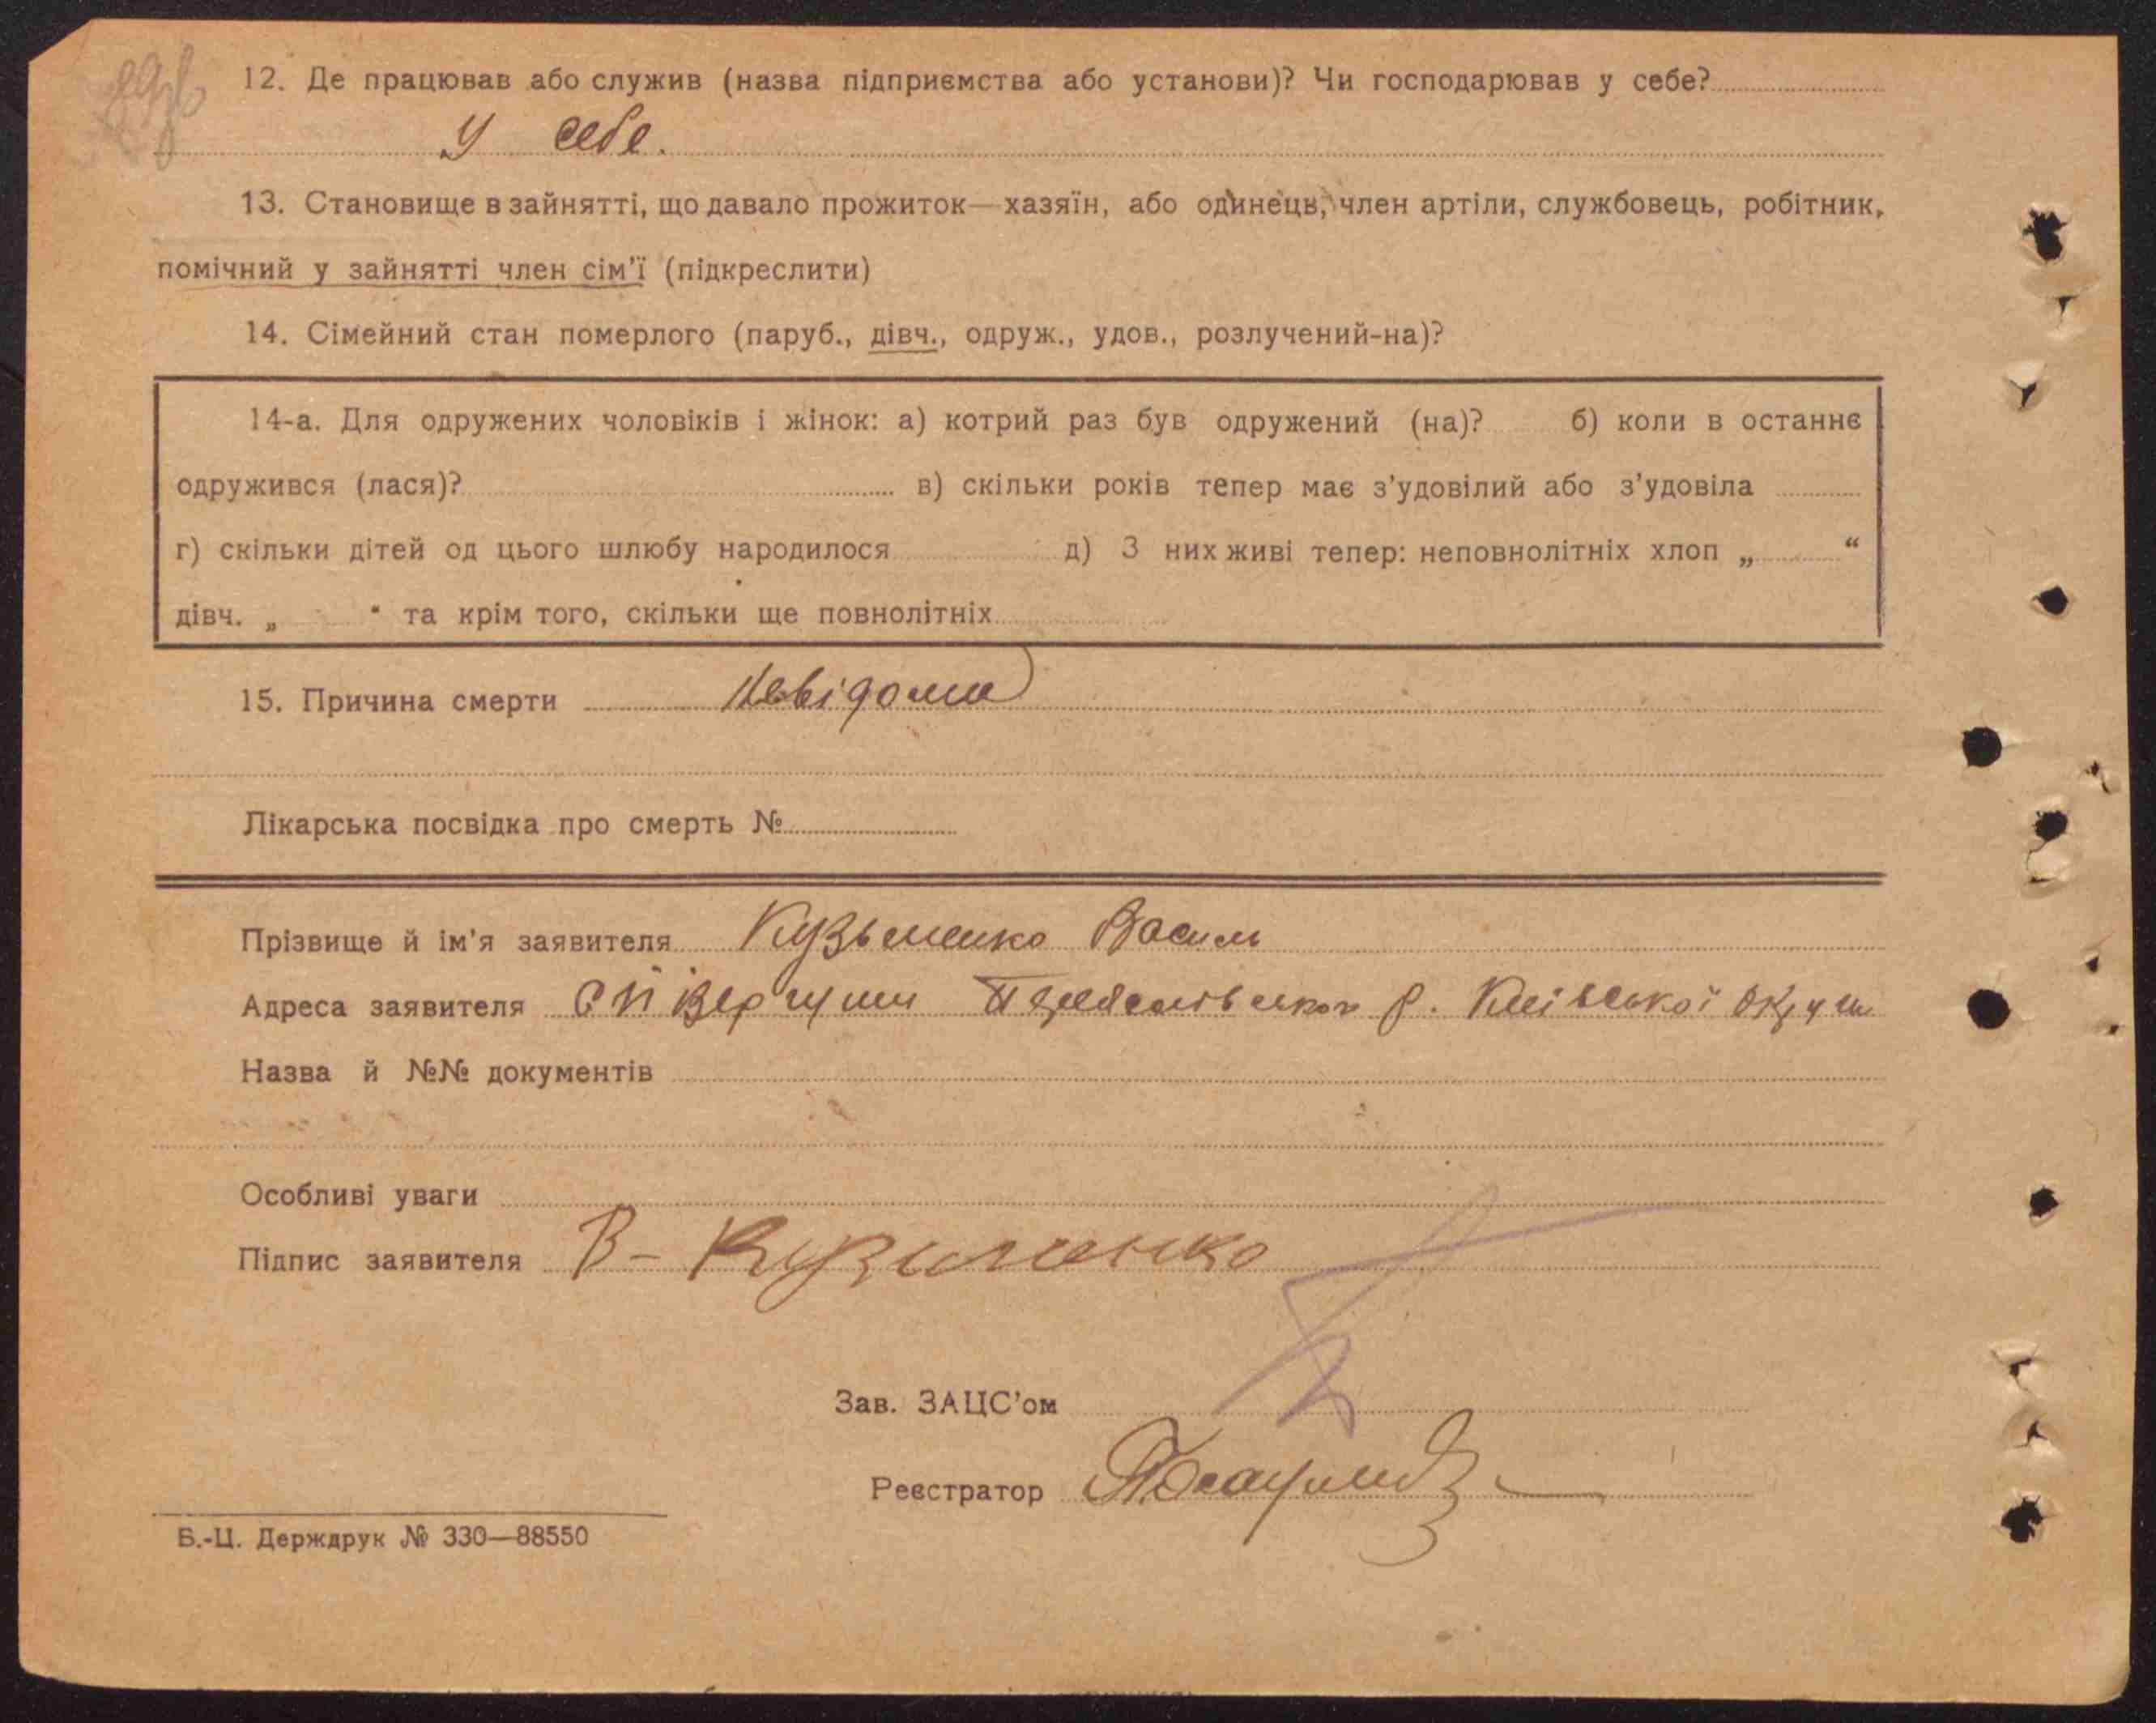 12. Де працював або служив (назва підприємства або установи)? Чи господарював у себе?
У себе.
13. Становище в зайнятті, що давало прожиток—хазяїн, або одинець, член артіли, службовець, робітник,
помічний у зайнятті член сім'ї (підкреслити)
14. Сімейний стан померлого (паруб., дівч., одруж., удов., розлучений-на)?
14-а. Для одружених чоловіків і жінок: а) котрий раз був одружений (на)? б) коли в останнє
одружився (лася)? в) скільки років тепер має з'удовілий або з'удовіла
г) скільки дітей од цього шлюбу народилося д) З них живі тепер: неповнолітніх хлоп „ “
дівч. „ “ та крім того, скільки ще повнолітніх
15. Причина смерти Невідома
Лікарська посвідка про смерть №
Прізвище й ім'я заявителя Кузьменко Василь
Адреса заявителя р. Київської Округи
Назва й №№ документів
Особливі уваги
Підпис заявителя В- Кузименко
Зав. ЗАЦС'ом
Реєстратор
Б.-Ц. Держдрук № 330—88550